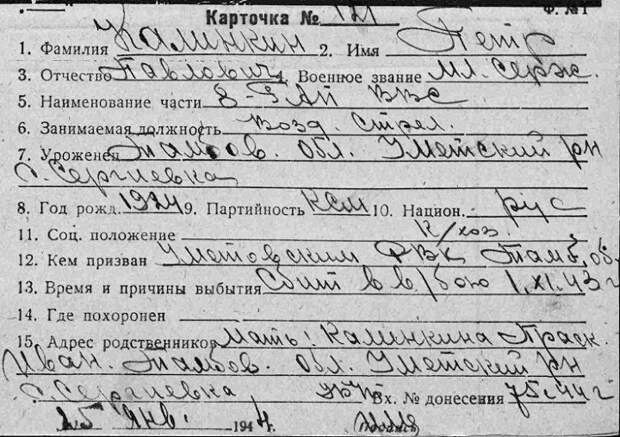 Карточка № 121 Ф. № 1
1. Фамилия Калинкин 2. Имя Петр
3. Отчество Павлович 4. Военное звание мл. серж.
5. Наименование части 8-З АП ВВС
6. Занимаемая должность Возд. стрел.
7. Уроженец Тамбов. обл. Уметский рн
с. Сергиевка
8. Год рожд. 1924 9. Партийность КСМ 10. Национ. рус
11. Соц. положение к/хоз
12. Кем призван Уметовским РВК Тамб. об.
13. Время и причины выбытия Сбит в в/бою 1.XI.43 г
14. Где похоронен
15. Адрес родственников Мать: Калинкина Праск.
Иван. Тамбов. обл. Уметский рн
с. Сергиевка Вх. № донесения 75.44 г
25 янв. 1944 Подпись